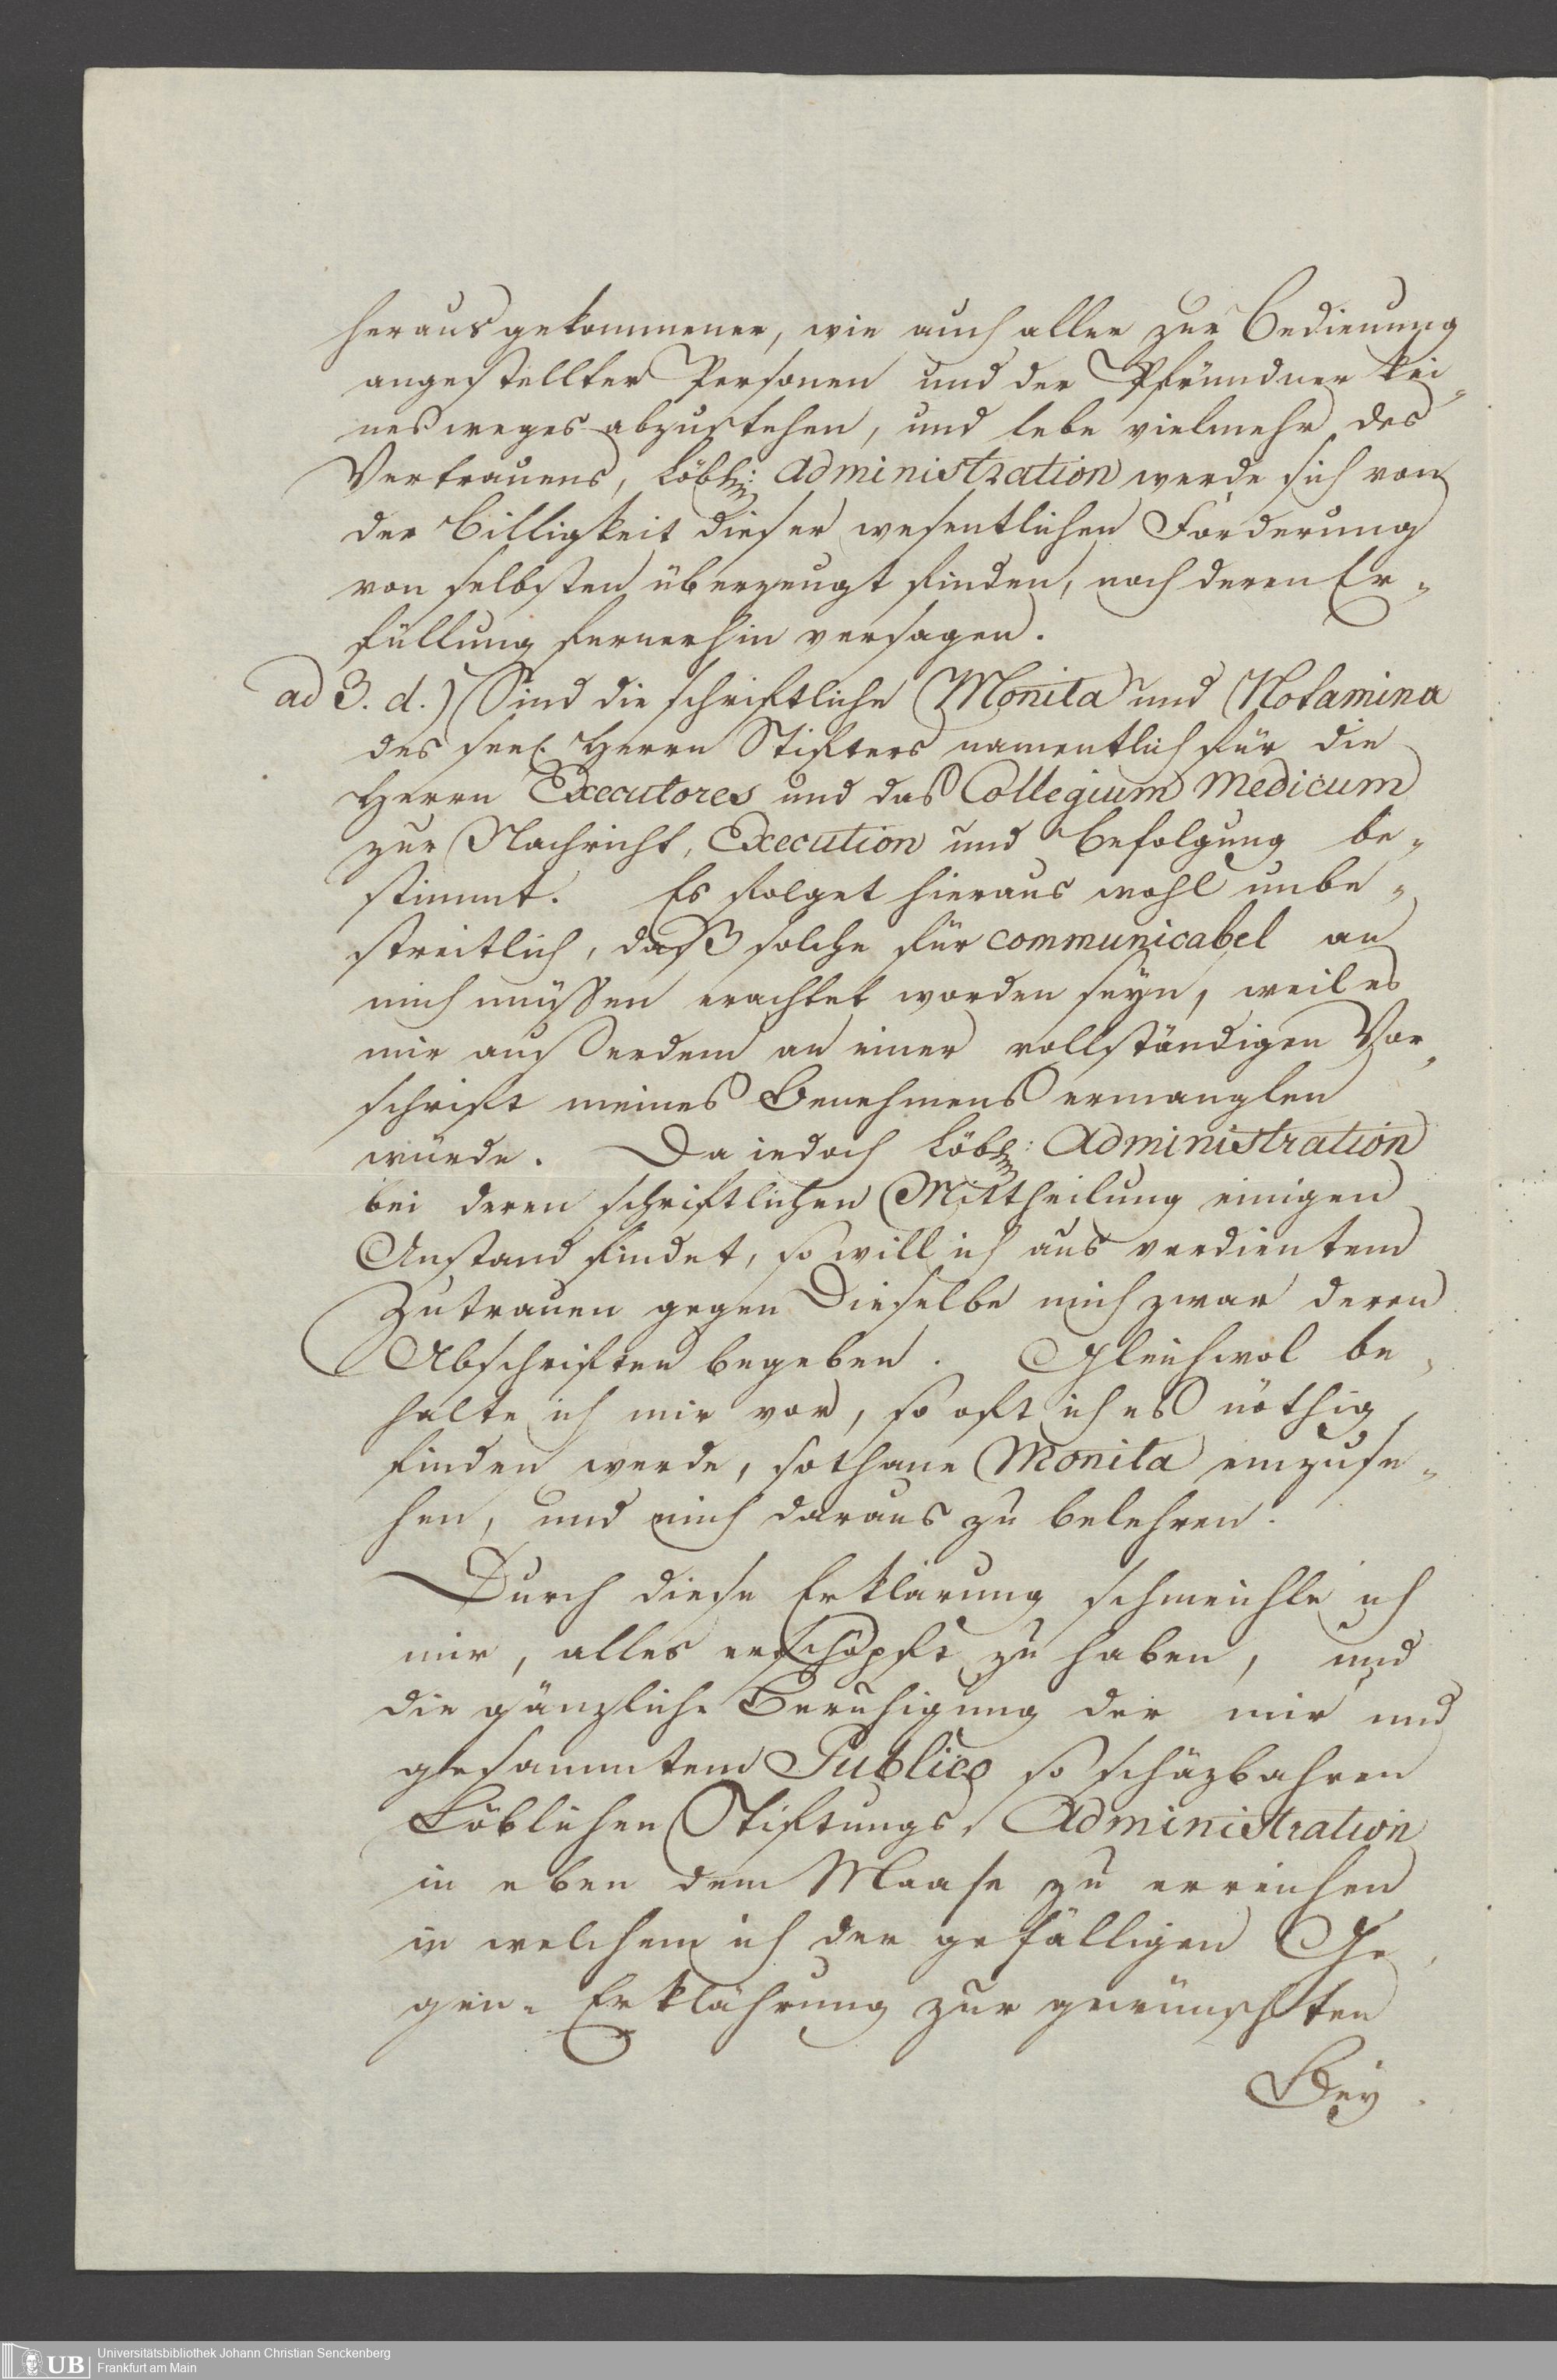 herausgekommener, wie auch aller zur Bedienung
angestellter Personen und der Pfründner kei-
nesweges abzustehen, und lebe vielmehr des
Vertrauens, Löbl: Administration werde sich von
der Billigkeit dieser wesentlichen Forderung
von selbsten überzeugt finden, noch deren Er-
füllung fernerhin versagen.
ad 3. d.) Sind die schriftliche Monita und Notamina
des seel. Herrn Stifters namentlich für die
Herrn Executores und das Collegium Medicum
zur Nachricht, Execution und Befolgung be-
stimmt. Es folget hieraus wohl unbe-
streitlich, daß solche für communicabel an
mich müssen erachtet worden seyn, weil es
mir ausserdem an einer vollständigen Vor-
schrift meines Benehmens ermanglen
würde. Da iedoch Löbl: Administration
bei deren schriftlichen Mittheilung einigen
Anstand findet, so will ich aus verdientem
Zutrauen gegen Dieselbe mich zwar deren
Abschriften begeben. Gleichwol be-
halte ich mir vor, so oft ich es nöthig
finden werde, sothane Monita einzuse-
hen, und mich daraus zu belehren.
Durch diese Erklärung schmeichle ich
mir, alles erschöpft zu haben, und
die gänzliche Beruhigung der mir und
gesammtem Publico so schäzbahren
Löblichen Stiftungs-Administration
in eben dem Maase zu erreichen
in welchem ich der gefälligen Ge-
gen-Erklährung zur gewünschten
Bey-
UB Universitätsbibliothek Johann Christian Senckenberg
Frankfurt am Main